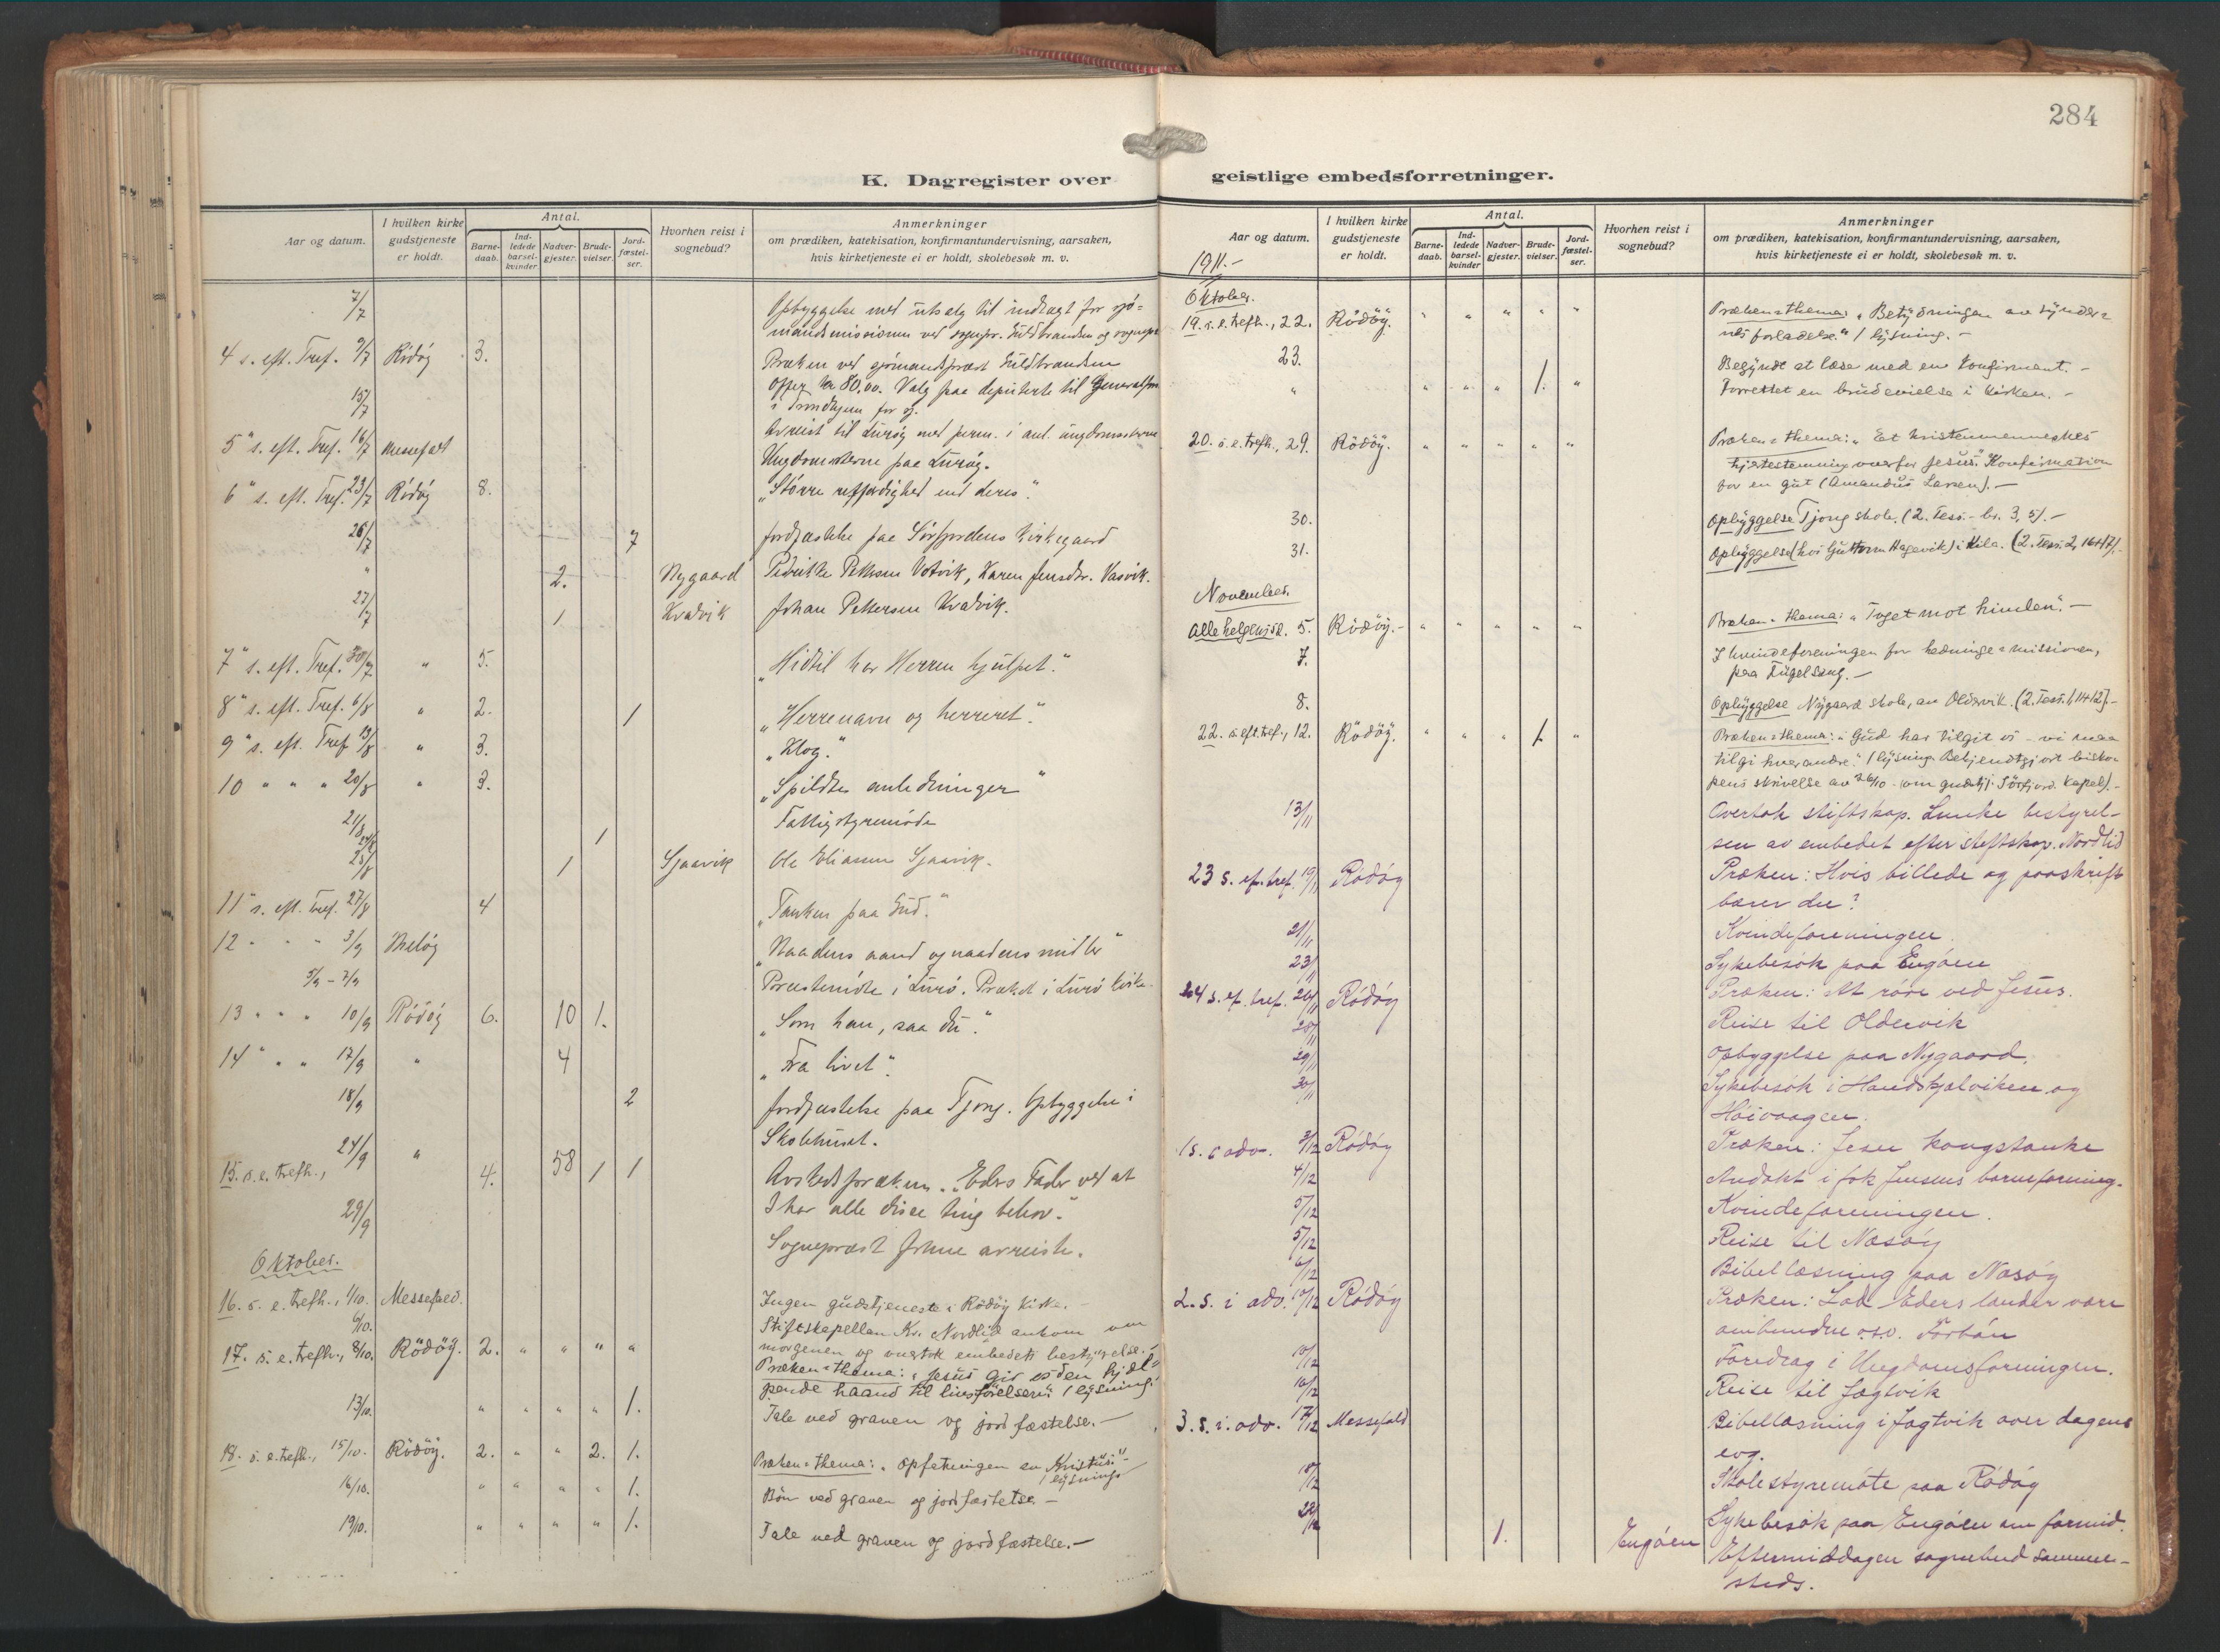 284
K. Dagregister over geistlige embedsforretninger.
Aar og datum. I hvilken kirke gudstjeneste er holdt. Antal. Barne-daab. Ind-ledede barsel-kvinder. Nadver-gjester. Brude-vielser. Jord-fæstel-ser. Hvorhen reist i sognebud? Anmerkninger om prædiken, katekisation, konfirmantundervisning, aarsaken, hvis kirketjeneste ei er holdt, skolebesøk m. v.
7/7 Opbyggelse med utsalg til indtægt for sjö-
mandsmissionen ved sognepr. Guldbrandsen og
4 s. eft. Tref. 9/7 Rödöy 3. Præken ved sjömandsprest Guldbrandsen
Offer kr 80,00. Valg paa deputerte til
15/7 i Trondhjem for
Avreist til Luröy med perm. i anl.
5" s. eft. Tref. 16/7 Messefald paa Luröy.
6" s. eft. Tref. 23/7 Rödöy 8. "Större retfærdighed end deres".
26/7 7 Jordfæstelse paa Sörfjordens Kirkegaard
" 2. Nygaard Petersen Votvik, Karen Jensdtr. Vasvik.
27/7 1 Kvadvik Johan Pettersen Kvadvik.
7" s. eft. Tref. 30/7 " 5. "Hidtil har Herren hjulpet."
8" s. eft. Tref. 6/8 " 2. 1 "Herrenavn og herreret".
9" s. eft. Tref 13/8 " 3. "Klog."
10 " " " 20/8 " 3. "Spildte anledninger"
21/8 Fattigstyremöde
1
25/8 1 Sjaavik Ole Eliassen Sjaavik.
11" s. eft. Tref. 27/8 4 "Tanken paa Gud."
12 " " " 3/9 Melöy "Naadens aand og naadens midler"
5/9 - 7/9 Prestemöte i Lurö. Præket i Lurö kirke.
13 " " " 10/9 Rödöy 6. 10 1. "Som han, saa du."
14 " " " 17/9 " 4 "Fra livet".
18/9 2 Jordfæstelse paa Tjong. Opbyggelse i
Skolehuset.
15. s. e. trefh., 24/9 " 4. 58 1 1 Avskedspræken. "Eders Fader ved at
I har alle disse ting behov."
29/9 Sogneprest avreiste.
Oktober.
16. s. e. trefh., 1/10. Messefald. Ingen gudstjeneste i Rödöy kirke.
6/10. Stiftskapellan Kr. Nordlid ankom om
17. s. e. trefh., 8/10. Rödöy. 2. " " " " morgenen og overtok embedets bestyrelse.
Præken-thema: "Jesus gir os den hjel-
pende haand til livsförelsen". 1 lysning.
13/10. " " " " 1. Tale ved graven og jordfæstelse. —
18. s. e. trefh., 15/10. Rödöy. 2. " " 2. 1. Præken-thema: "Opfatningen av Kristus." -
1 lysning.
16/10. " " " " 1. Bön ved graven og jordfæstelse —
19/10. " " " " 1. Tale ved graven og jordfæstelse. —
Aar og datum. I hvilken kirke gudstjeneste er holdt. Antal. Barne-daab. Ind-ledede barsel-kvinder Nadver-gjester. Brude-vielser. Jord-fæstel-ser. Hvorhen reist i sognebud? Anmerkninger om prædiken, katekisation, konfirmantundervisning, aarsaken, hvis kirketjeneste ei er holdt, skolebesøk m. v.
1911.-
Oktober.
19. s. e. trefh., 22. Rödöy. " " " " " Præken-thema: "Betydningen av synder-
nes forladelse." 1 lysning. -
23. Begyndt at læse med en konfirmant. -
" " " " 1. " Forrettet en brudevielse i kirken. -
20. s. e. trefh., 29. Rödöy. " " " " " Præken-thema: "Et kristenmenneskes
hjertestemning overfor Jesus." Konfirmation
for en gut (Amandus Larsen). —
30. Opbyggelse Tjong skole. (2. Tess.-br. 3, 5). -
31. Opbyggelse (hos Guttorm Hagevik) i Kila. (2. Tess. 2, 16+17). -
November.
Allehelgensd. 5. Rödöy. - " " " " " Præken-thema: "Toget mot himlen". —
7. I kvindeforeningen for hedninge-missionen,
paa Fuglesang. —
8. Opbyggelse Nygaard skole, av Oldervik. (2. Tess. 1, 11+12). -
22. s. eft. tref., 12. Rödöy. " " " 1. " Præken-thema: "Gud har tilgit os - vi maa
tilgi hverandre." 1 lysning. Bekjendtgjort bisko-
pens skrivelse av 26/10 (om gudstj. i Sörfjord. kapel). -
13/11 Overtok stiftskap. Lunke bestyrel-
sen av embedet efter stiftskap. Nordlid
23 s. ef. tref. 19/11 Rödöy Præken: Hvis billede og paaskrift
bærer du?
21/11 Kvindeforeningen.
23/11 Sykebesök paa Engöen
24 s. ef. tref. 26/11 Rödöy Præken: At röre ved Jesus.
28/11 Reise til Oldervik
29/11 Opbyggelse paa Nygaard.
30/11 Sykebesök i Handskjælviken og
Höivaagen.
1 s. i adv. 3/12 Rödöy Præken: Jesu kongstanke
4/12 Andakt i frk Jensens barneforening.
5/12 Kvindeforeningen.
5/12 Reise til Næsöy
6/12 Bibellæsning paa Næsöy
2. s. i adv. 10/12 Rödöy Præken: Lad Eders lænder være
ombundne o.s.v. Forbön
10/12 Foredrag i Ungdomsforeningen.
16/12 Reise til Jægtvik
3. s. i. adv. 17/12 Messefald Bibellæsning i Jægtvik over dagens
evg.
18/12 Skolestyremöte paa Rödöy
1. Engöen Sykebesök paa Engöen om formid.
Eftermiddagen sognebud samme-
steds.